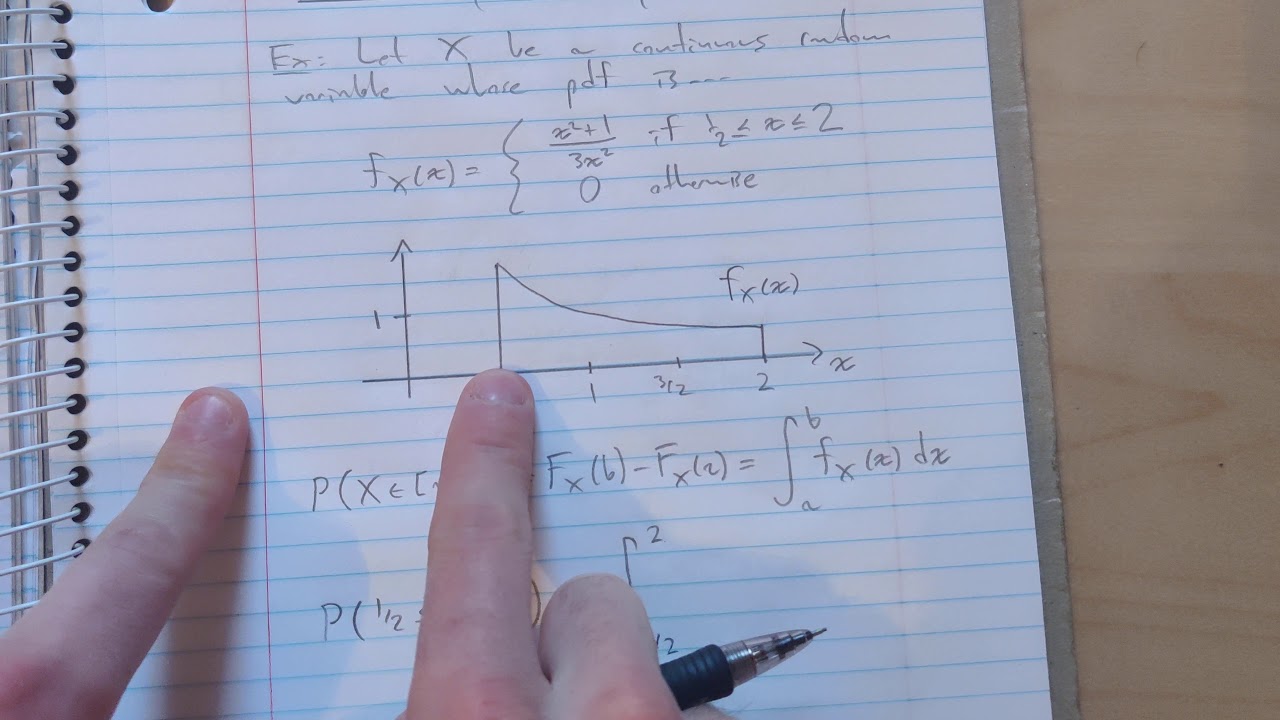 Ex: Let X be a continuous random
variable whose pdf is ---
f_X(x) = { (x²+1)/(3x²) if 1/2 ≤ x ≤ 2
0 otherwise
f_X(x)
1
1 3/2 2 x
P(X ∈ [ F_X(b) - F_X(a) = ∫_a^b f_X(x) dx
P(1/2 ) ∫ 2